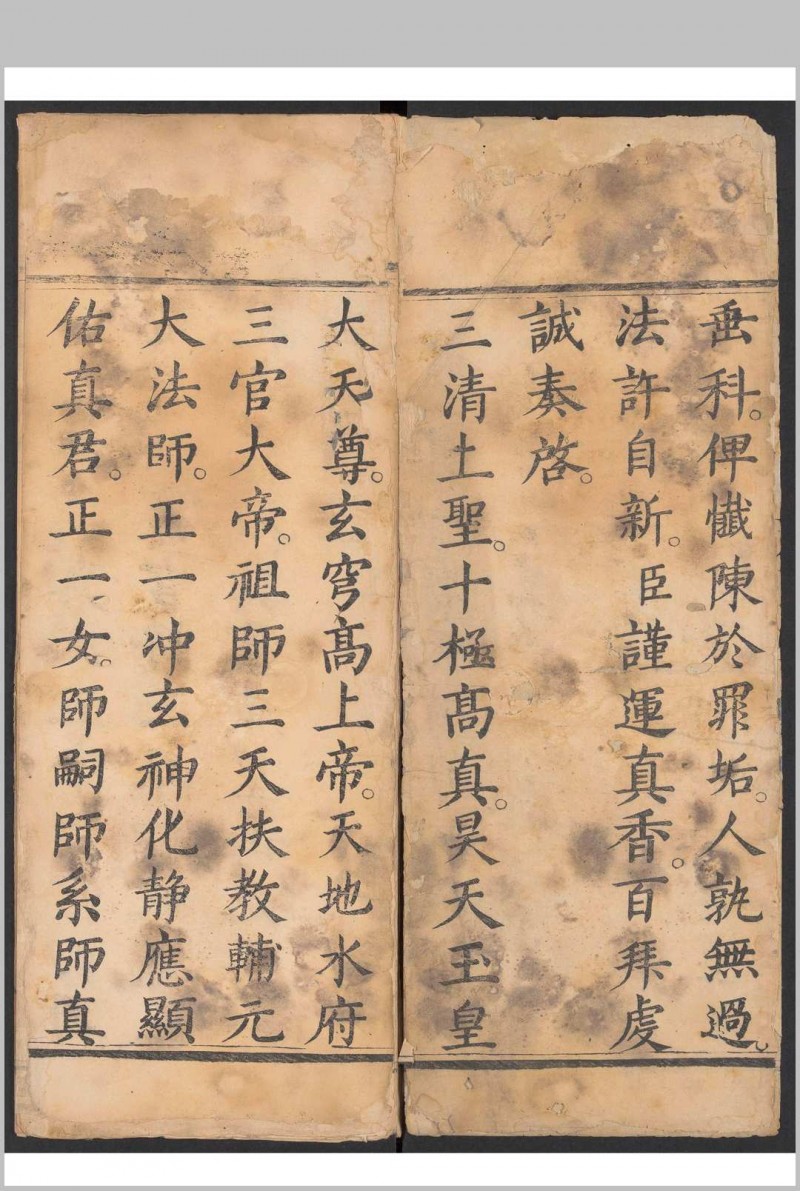 垂科。俾懺陳於罪垢。人孰無過。
法許自新。臣謹運真香。百拜虔
誠奏啓。
三清上聖。十極髙真。昊天玉皇
大天尊。玄穹髙上帝。天地水府
三官大帝。祖師三天扶教輔元
大法師。正一冲玄神化静應顯
佑真君。正一女。師嗣師系師真